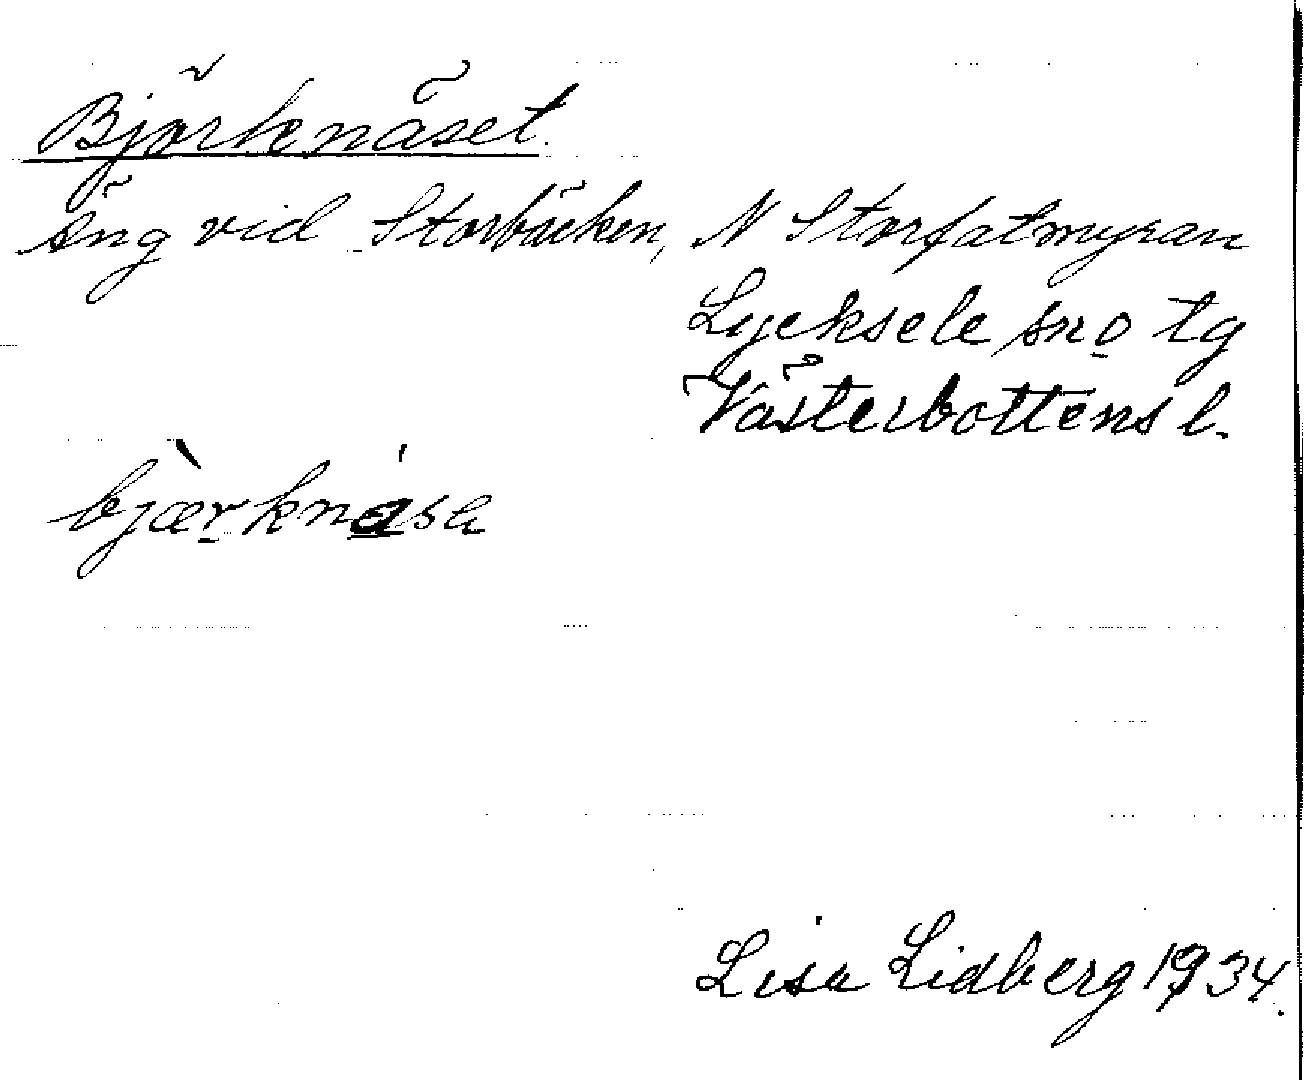 Björknäset.
Äng vid Storbäcken, N Storfatmyran
Lycksele sn o tg
Västerbottens l.
bjæ̀rknása
Lisa Lidberg 1934.